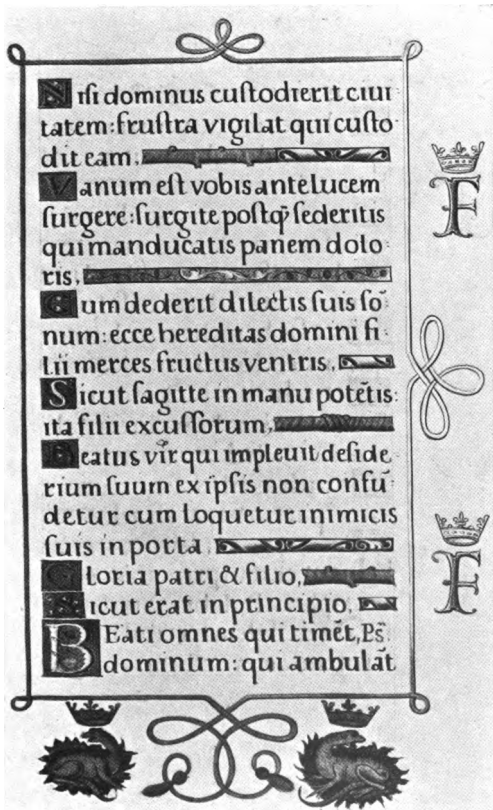 Nisi dominus custodierit ciui
tatem: frustra vigilat qui custo
dit eam.
Vanum est vobis ante lucem
surgere: surgite postꝙ̃ sederitis
qui manducatis panem dolo
ris.
Cum dederit dilectis suis sõ
num: ecce hereditas domini fi
lii merces fructus ventris.
Sicut sagitte in manu potẽtis:
ita filii excussorum.
Beatus vir qui impleuit deside
rium suum ex ip̃sis non confũ
detur cum loquetur inimicis
suis in porta.
Gloria patri & filio,
Sicut erat in principio.
BEati omnes qui timẽt, Ps̃.
dominum: qui ambulãt
F
F